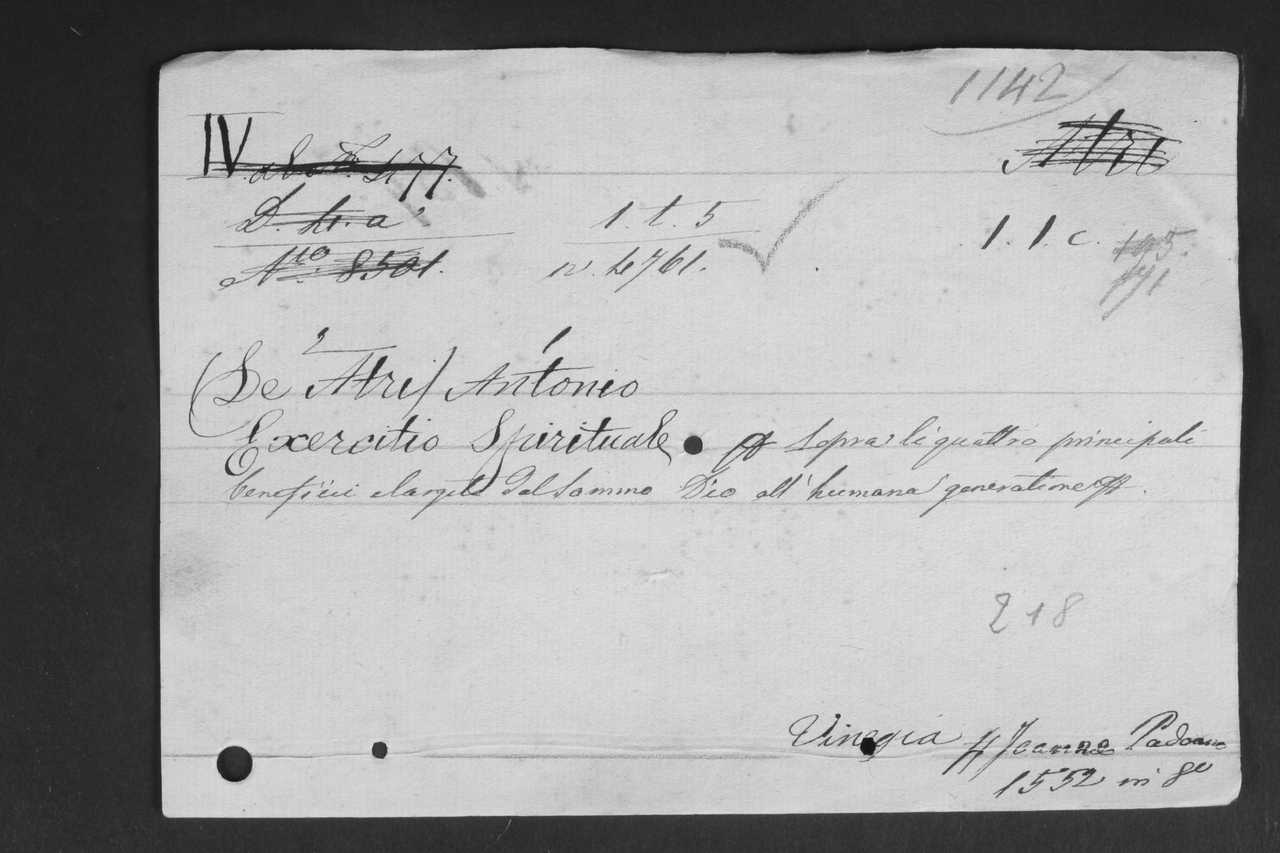 1142
IV
Atri
D. h. a
1. t. 5
1. 1. c.
195.
No. 8501.
n. 4761.
2 1
(De Atri) Antonio
Exercitio Spirituale sopra li quattro principali
beneficii elargiti dal sommo Dio all'humana generatione.
2+8
Vinegia Joanne Padoano
1552 in 8o